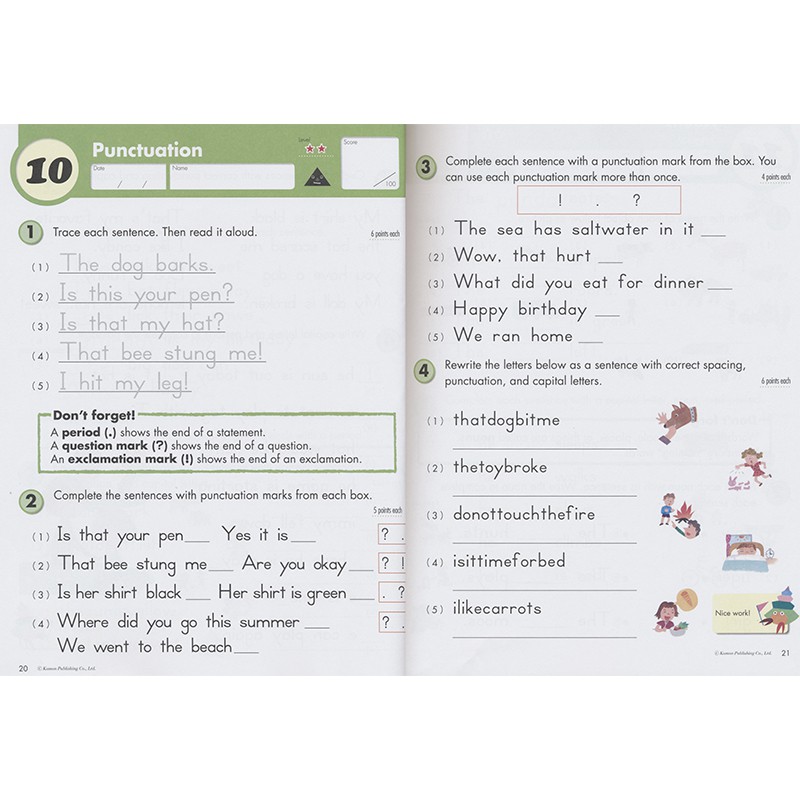 10
Punctuation
Level
Date
/ /
Name
Score
/100
1 Trace each sentence. Then read it aloud.
6 points each
(1) The dog barks.
(2) Is this your pen?
(3) Is that my hat?
(4) That bee stung me!
(5) I hit my leg!
Don't forget!
A period (.) shows the end of a statement.
A question mark (?) shows the end of a question.
An exclamation mark (!) shows the end of an exclamation.
2 Complete the sentences with punctuation marks from each box.
5 points each
(1) Is that your pen___ Yes it is___ ? .
(2) That bee stung me___ Are you okay___ ? !
(3) Is her shirt black___ Her shirt is green___ . ?
(4) Where did you go this summer___ ? .
We went to the beach___
20 © Kumon Publishing Co., Ltd.
3 Complete each sentence with a punctuation mark from the box. You
can use each punctuation mark more than once.
4 points each
! . ?
(1) The sea has saltwater in it___
(2) Wow, that hurt___
(3) What did you eat for dinner___
(4) Happy birthday___
(5) We ran home___
4 Rewrite the letters below as a sentence with correct spacing,
punctuation, and capital letters.
6 points each
(1) thatdogbitme
(2) thetoybroke
(3) donottouchthefire
(4) isittimeforbed
(5) ilikecarrots
Nice work!
© Kumon Publishing Co., Ltd. 21